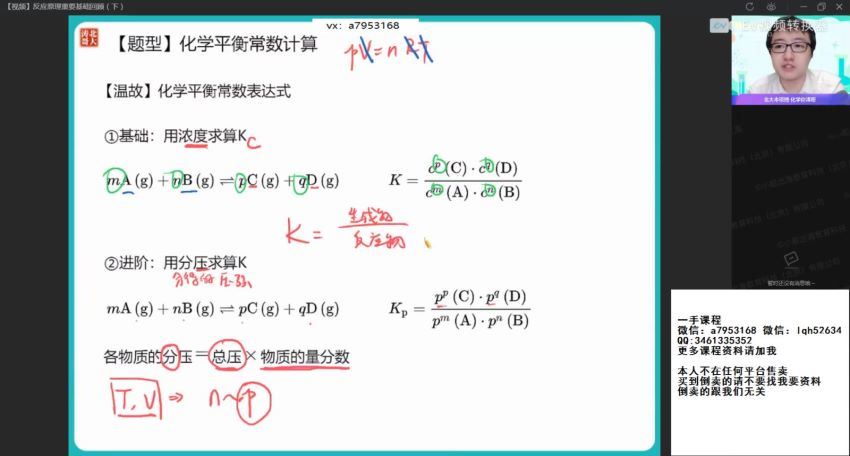 【视频】反应原理重要基础回顾（下）
vx: a7953168
【题型】化学平衡常数计算
pV=nRT
【温故】化学平衡常数表达式
①基础：用浓度求算K C
mA(g)+nB(g)⇌pC(g)+qD(g)
K = c^p(C)·c^q(D) / c^m(A)·c^n(B)
K = 生成物 / 反应物
②进阶：用分压求算K
mA(g)+nB(g)⇌pC(g)+qD(g)
K_p = p^p(C)·p^q(D) / p^m(A)·p^n(B)
各物质的分压=总压×物质的量分数
T,V ⇒ n~p
暂时还没有消息哦~
一手课程
微信：a7953168 微信：lqh52634
QQ:3461335352
更多课程资料请加我
本人不在任何平台售卖
买到倒卖的请不要找我要资料
倒卖的跟我们无关